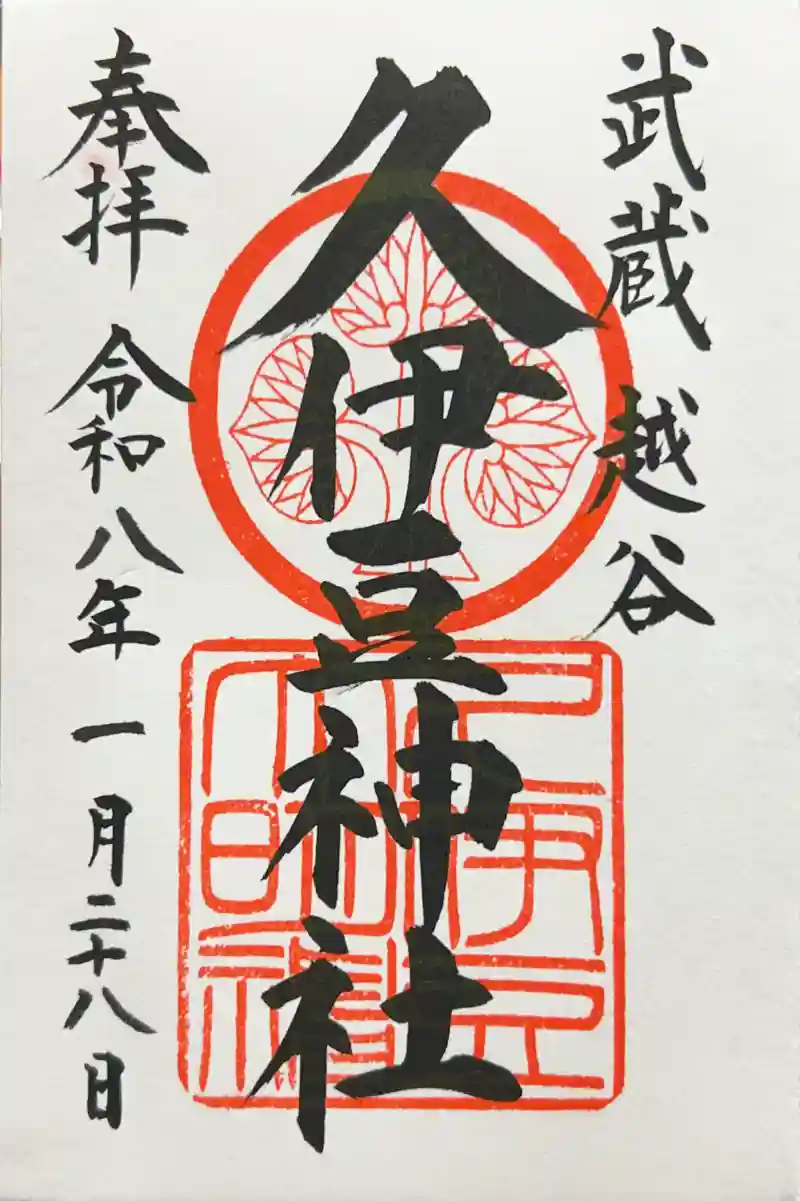 武蔵 越谷
久伊豆神社
奉拝 令和八年 一月二十八日